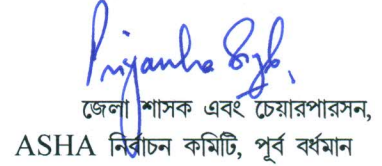 Priyanka Singla
জেলা শাসক এবং চেয়ারপারসন,
ASHA নির্বাচন কমিটি, পূর্ব বর্ধমান